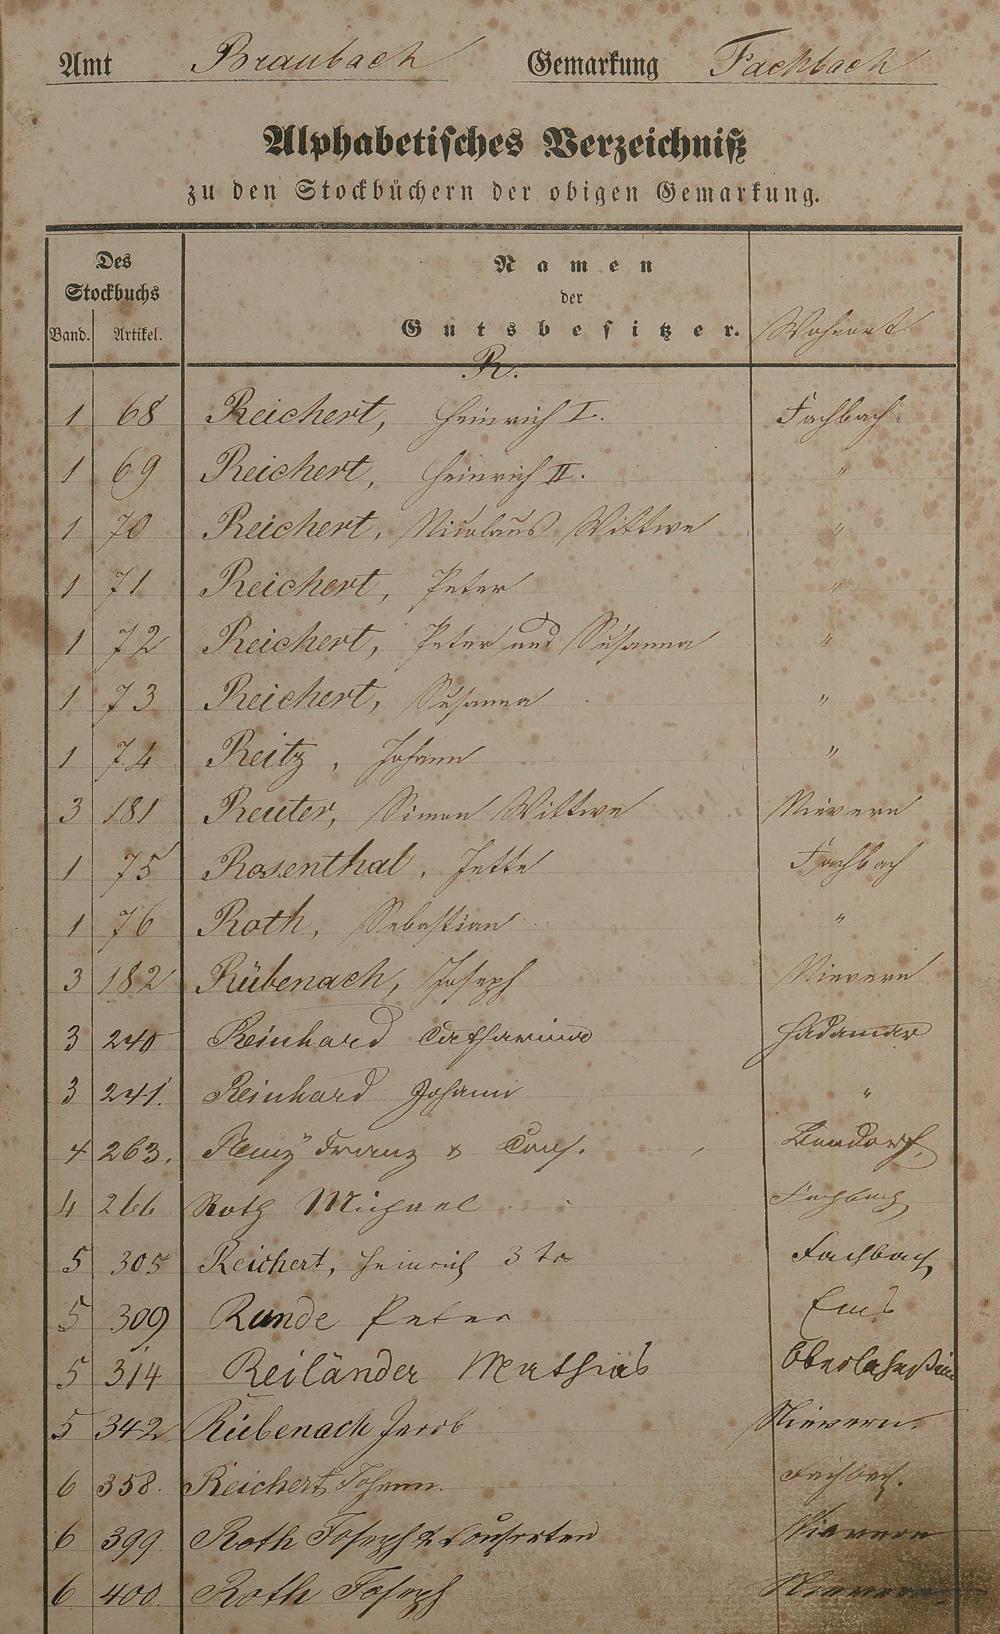 Amt Braubach Gemarkung Fachbach
Alphabetisches Verzeichniß
zu den Stockbüchern der obigen Gemarkung.
Des Stockbuchs Namen der Gutsbesitzer. Wohnort
Band. Artikel.
R.
1 68 Reichert, Heinrich I. Fachbach
1 69 Reichert, Heinrich II. "
1 70 Reichert, Nicolaus Wittwe "
1 71 Reichert, Peter "
1 72 Reichert, Peter und Susanna "
1 73 Reichert, Susanna "
1 74 Reitz, Johann "
3 181 Reuter, Simon Wittwe Nievern
1 75 Rosenthal, Jette Fachbach
1 76 Roth, Sebastian "
3 182 Rübenach, Joseph Nievern
3 240 Reinhard Catharina Hadamar
3 241. Reinhard Johann "
4 263. Remy Franz & Cons. Bendorf.
4 266 Roth Michael Fachbach
5 305 Reichert, Heinrich 3tr Fachbach
5 309 Runde Peter Ems
5 314 Reiländer Mathias Oberlahnstein
5 342 Rübenach Jacob Nievern.
6 358. Reichert Johann. Fachbach.
6 399 Roth Joseph & Consorten Nievern
6 400 Roth Joseph Nievern